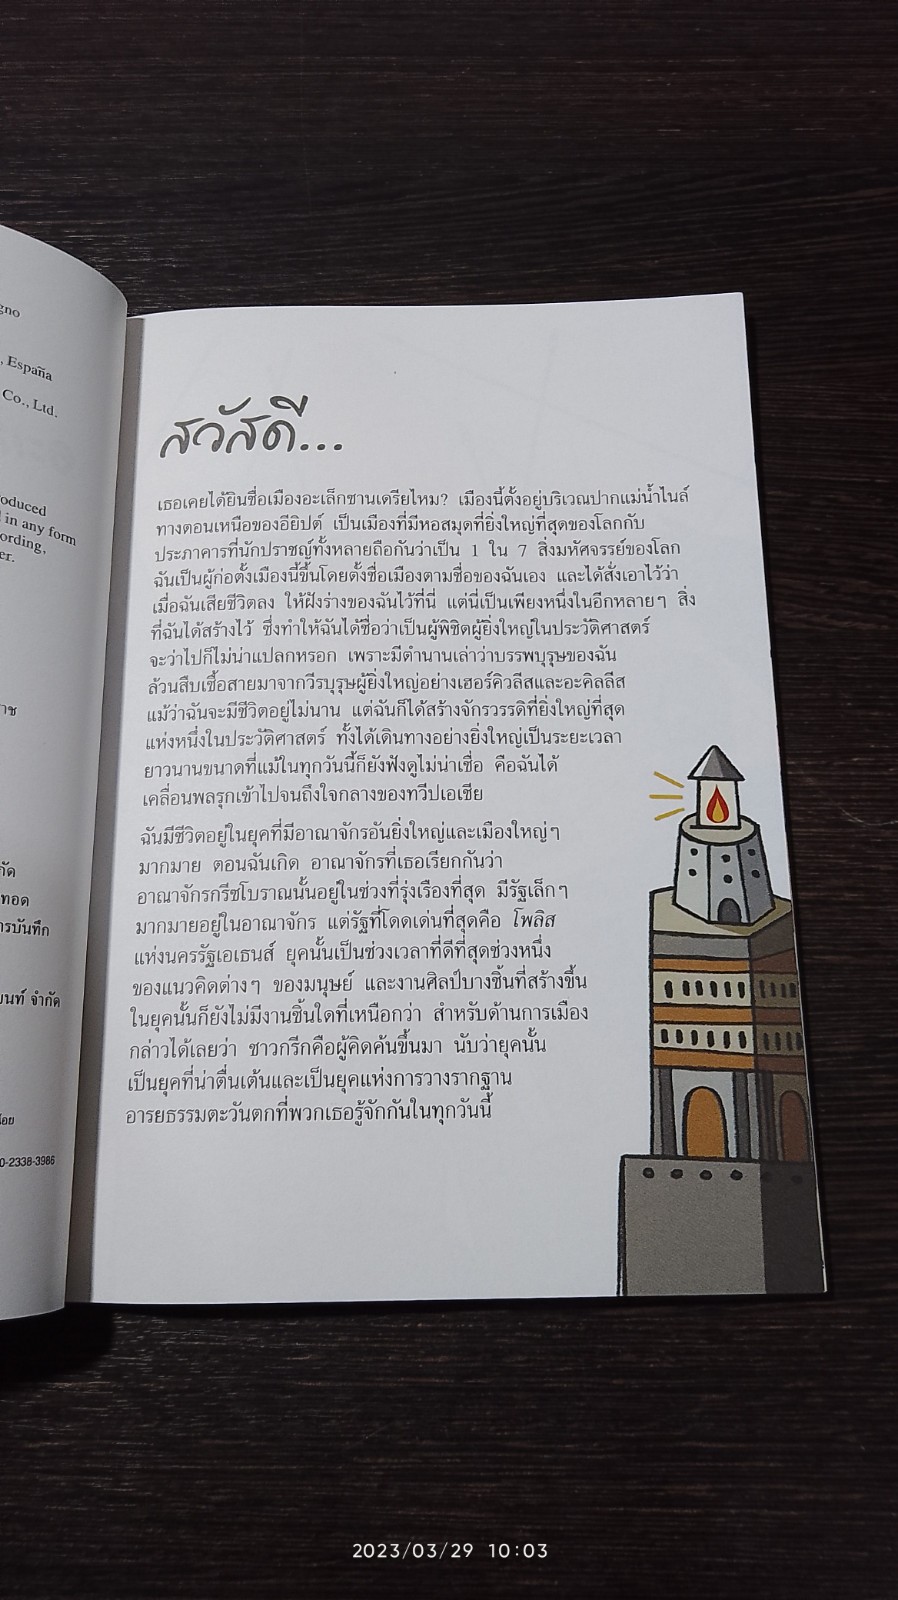 gno
, España
Co., Ltd.
oduced
in any form
ording,
er.
าช
กัด
ทอด
ารบันทึก
มนท์ จำกัด
น้อย
0-2338-3986
สวัสดี...
เธอเคยได้ยินชื่อเมืองอะเล็กซานเดรียไหม? เมืองนี้ตั้งอยู่บริเวณปากแม่น้ำไนล์
ทางตอนเหนือของอียิปต์ เป็นเมืองที่มีหอสมุดที่ยิ่งใหญ่ที่สุดของโลกกับ
ประภาคารที่นักปราชญ์ทั้งหลายถือกันว่าเป็น 1 ใน 7 สิ่งมหัศจรรย์ของโลก
ฉันเป็นผู้ก่อตั้งเมืองนี้ขึ้นโดยตั้งชื่อเมืองตามชื่อของฉันเอง และได้สั่งเอาไว้ว่า
เมื่อฉันเสียชีวิตลง ให้ฝังร่างของฉันไว้ที่นี่ แต่นี่เป็นเพียงหนึ่งในอีกหลายๆ สิ่ง
ที่ฉันได้สร้างไว้ ซึ่งทำให้ฉันได้ชื่อว่าเป็นผู้พิชิตผู้ยิ่งใหญ่ในประวัติศาสตร์
จะว่าไปก็ไม่น่าแปลกหรอก เพราะมีตำนานเล่าว่าบรรพบุรุษของฉัน
ล้วนสืบเชื้อสายมาจากวีรบุรุษผู้ยิ่งใหญ่อย่างเฮอร์คิวลีสและอะคิลลีส
แม้ว่าฉันจะมีชีวิตอยู่ไม่นาน แต่ฉันก็ได้สร้างจักรวรรดิที่ยิ่งใหญ่ที่สุด
แห่งหนึ่งในประวัติศาสตร์ ทั้งได้เดินทางอย่างยิ่งใหญ่เป็นระยะเวลา
ยาวนานขนาดที่แม้ในทุกวันนี้ก็ยังฟังดูไม่น่าเชื่อ คือฉันได้
เคลื่อนพลรุกเข้าไปจนถึงใจกลางของทวีปเอเชีย
ฉันมีชีวิตอยู่ในยุคที่มีอาณาจักรอันยิ่งใหญ่และเมืองใหญ่ๆ
มากมาย ตอนฉันเกิด อาณาจักรที่เธอเรียกกันว่า
อาณาจักรกรีซโบราณนั้นอยู่ในช่วงที่รุ่งเรืองที่สุด มีรัฐเล็กๆ
มากมายอยู่ในอาณาจักร แต่รัฐที่โดดเด่นที่สุดคือ โพลิส
แห่งนครรัฐเอเธนส์ ยุคนั้นเป็นช่วงเวลาที่ดีที่สุดช่วงหนึ่ง
ของแนวคิดต่างๆ ของมนุษย์ และงานศิลป์บางชิ้นที่สร้างขึ้น
ในยุคนั้นก็ยังไม่มีงานชิ้นใดที่เหนือกว่า สำหรับด้านการเมือง
กล่าวได้เลยว่า ชาวกรีกคือผู้คิดค้นขึ้นมา นับว่ายุคนั้น
เป็นยุคที่น่าตื่นเต้นและเป็นยุคแห่งการวางรากฐาน
อารยธรรมตะวันตกที่พวกเธอรู้จักกันในทุกวันนี้
2023/03/29 10:03